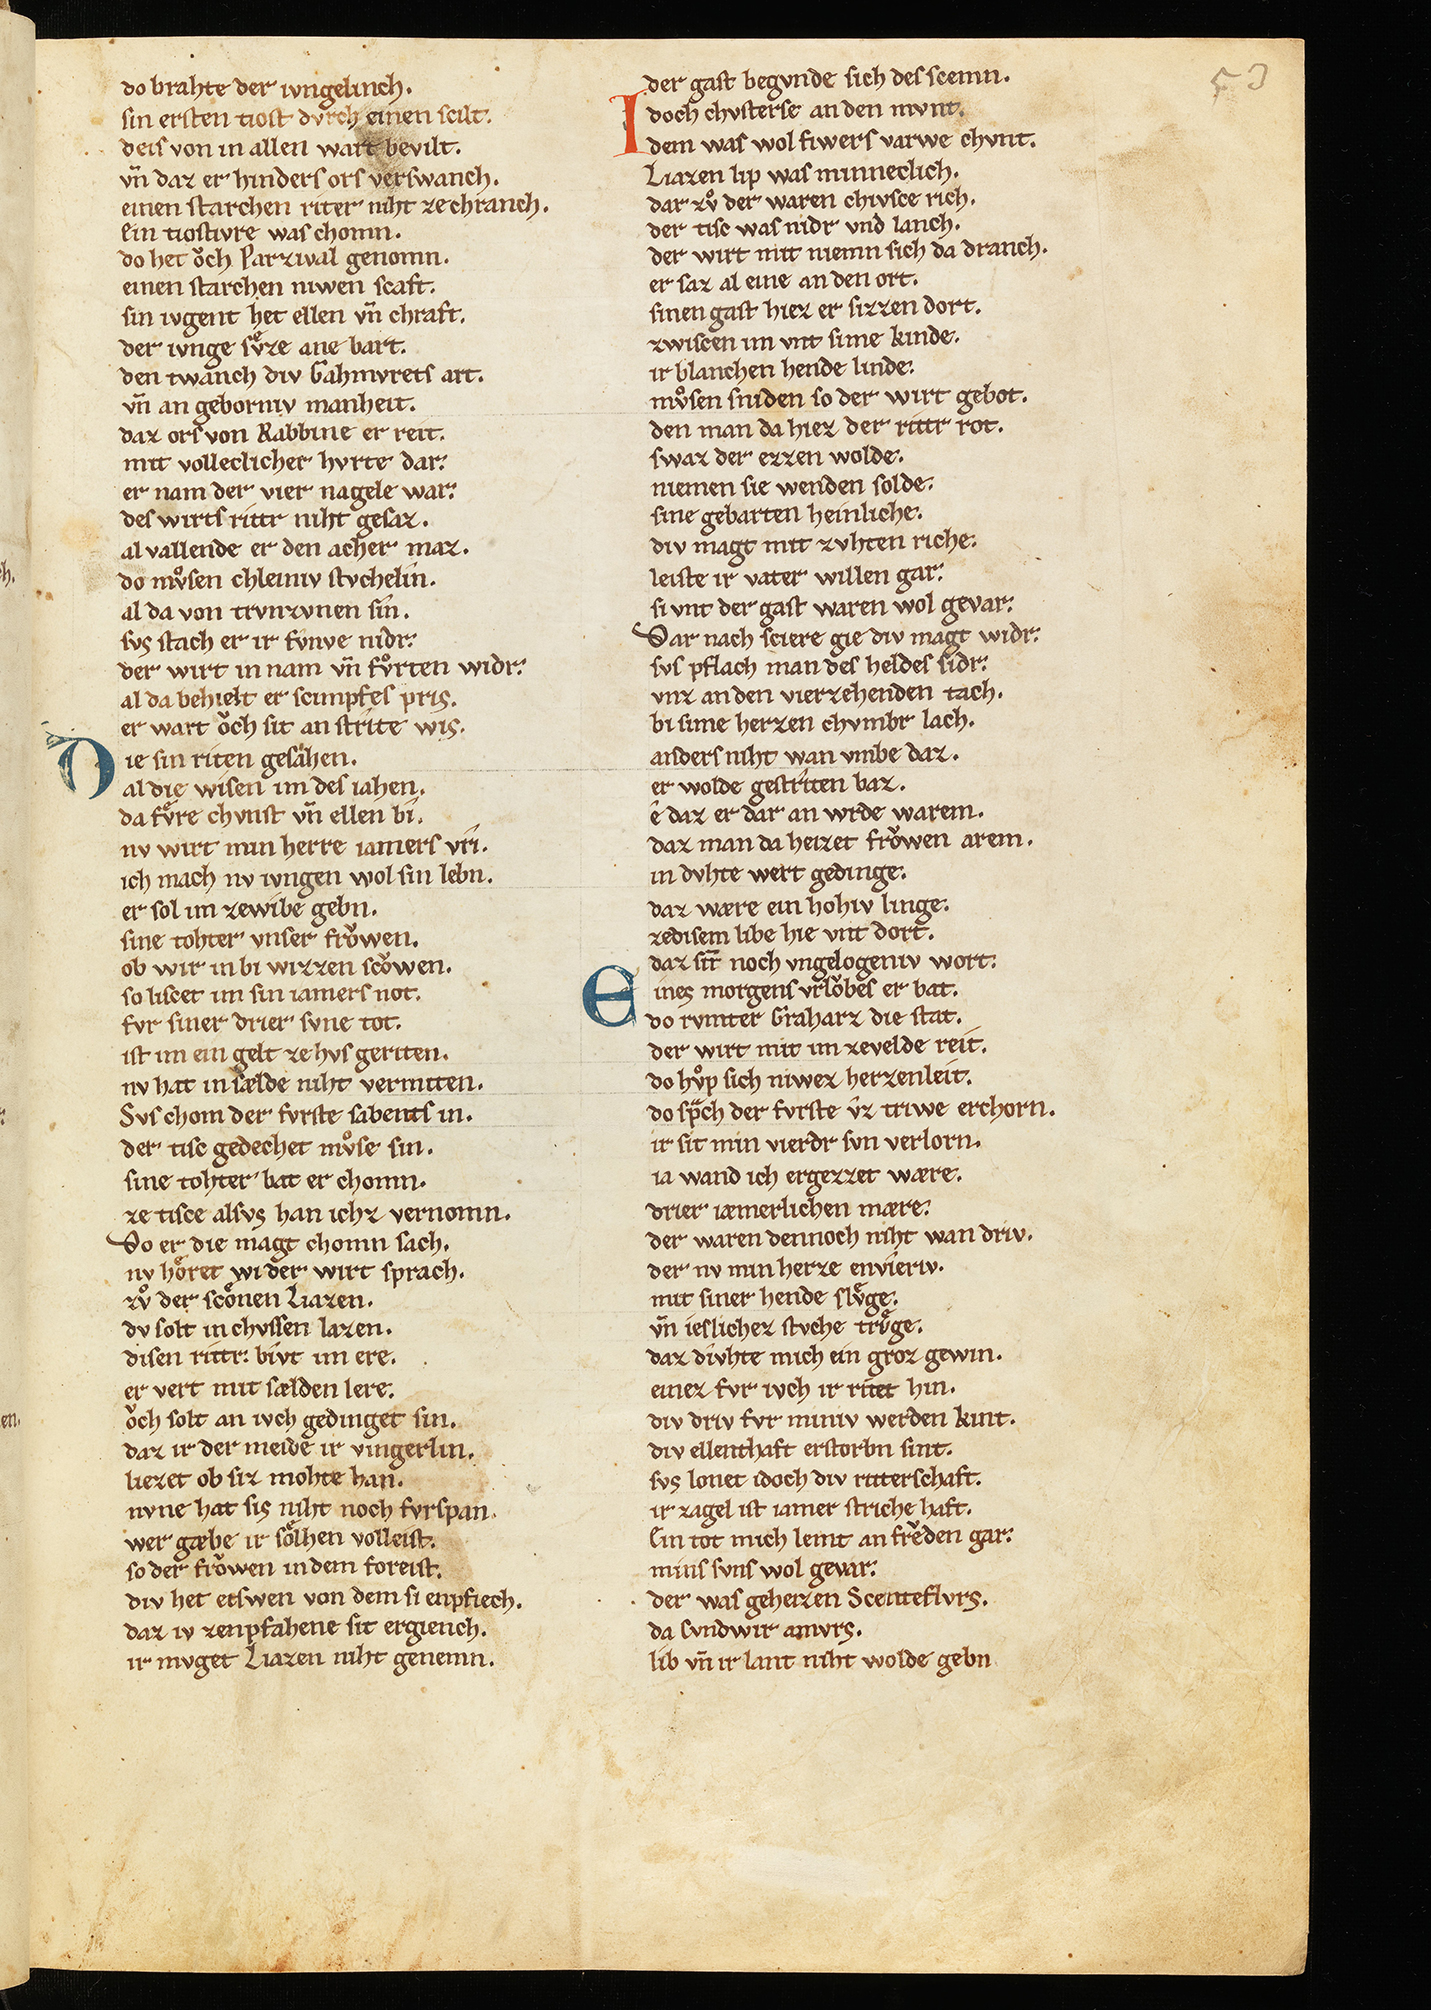 do brahte der ivngelinch.
sin ersten tiost dvrch einen scilt.
deis von in allen wart bevilt.
vn̄ daz er hinders ors verswanch.
einen starchen riter niht ze chranch.
Ein tiostivre was chomn.
do het oͮch Parzival genomn.
einen starchen niwen scaft.
sin ivgent het ellen vn̄ chraft.
der ivnge svͤze ane bart.
den twanch div Gahmvrets art.
vn̄ an geborniv manheit.
daz ors von Rabbine er reit.
mit volleclicher hvrte dar.
er nam der vier nagele war.
des wirts rittr niht gesaz.
al vallende er den acher maz.
do mvͦsen chleiniv stvchelin.
al da von trvnzvnen sin.
svs stach er ir fvnve nidr.
der wirt in nam vn̄ fvͦrten widr.
al da behielt er scimpfes pris.
er wart oͮch sit an strite wis.
Die sin riten gesahen.
al die wisen im des iahen.
da fvͤre chvnst vn̄ ellen bi.
nv wirt min herre iamers vri.
ich mach nv ivngen wol sin lebn.
er sol im ze wibe gebn.
sine tohter vnser froͮwen.
ob wir in bi wizzen scoͮwen.
so liscet im sin iamers not.
fvr siner drier svne tot.
ist im ein gelt ze hvs geriten.
nv hat in sælde niht vermiten.
Svs chom der fvrste sabents in.
der tisc gedechet mvͦse sin.
sine tohter bat er chomn.
ze tisce alsvs han ichz vernomn.
Do er die magt chomn sach.
nv hoͤret wi der wirt sprach.
zvͦ der scoͤnen Liazen.
dv solt in chvssen lazen.
disen rittr. bivt im ere.
er vert mit sælden lere.
oͮch solt an ivch gedinget sin.
daz ir der meide ir vingerlin.
liezet ob siz mohte han.
nvne hat sis niht noch fvrspan.
wer gæbe ir soͤlhen volleist.
so der froͮwen in dem foreist.
div het etswen von dem si enpfiech.
daz iv zenpfahene sit ergiench.
ir mvget Liazen niht genemn.
der gast begvnde sich des scemn.
Idoch chvsterse an den mvnt.
dem was wol fiwers varwe chvnt.
Liazen lip was minneclich.
dar zvͦ der waren chivsce rich.
der tisc was nidr vnd lanch.
der wirt mit niemn sich da dranch.
er saz al eine an den ort.
sinen gast hiez er sizzen dort.
zwiscen im vnt sime kinde.
ir blanchen hende linde.
mvͦsen sniden so der wirt gebot.
den man da hiez der rittr rot.
swaz der ezzen wolde.
niemen sie wenden solde.
sine gebarten heinliche.
div magt mit zvhten riche.
leiste ir vater willen gar.
si vnt der gast waren wol gevar.
Dar nach sciere gie div magt widr.
svs pflach man des heldes sidr.
vnz an den vierzehenden tach.
bi sime herzen chvmbr lach.
anders niht wan vmbe daz.
er wolde gestriten baz.
ê daz er dar an wrde warem.
daz man da heizet froͮwen arem.
in dvhte wert gedinge.
daz wære ein hohiv linge.
ze disem libe hie vnt dort.
daz sit noch vngelogeniv wort.
Eines morgens vrloͮbes er bat.
do rvmter Graharz die stat.
der wirt mit im ze velde reit.
do hvͦp sich niwez herzenleit.
do sp̄ch der fvrste v̂z triwe erchorn.
ir sit min vierdr svn verlorn.
ia wand ich ergezzet wære.
drier iæmerlichen mære.
der waren dennoch niht wan driv.
der nv min herze envieriv.
mit siner hende slvͤge.
vn̄ ieslichez stvche trvͤge.
daz divhte mich ein groz gewin.
einez fvr ivch ir ritet hin.
div driv fvr miniv werden kint.
div ellenthaft erstorbn sint.
svs lonet idoch div riterschaft.
ir zagel ist iamer striche haft.
Ein tot mich lemt an freͮden gar.
mins svns wol gevar.
der was geheizen Scenteflvrs.
da Cvndwir amvrs.
lib vn̄ ir lant niht wolde gebn
53